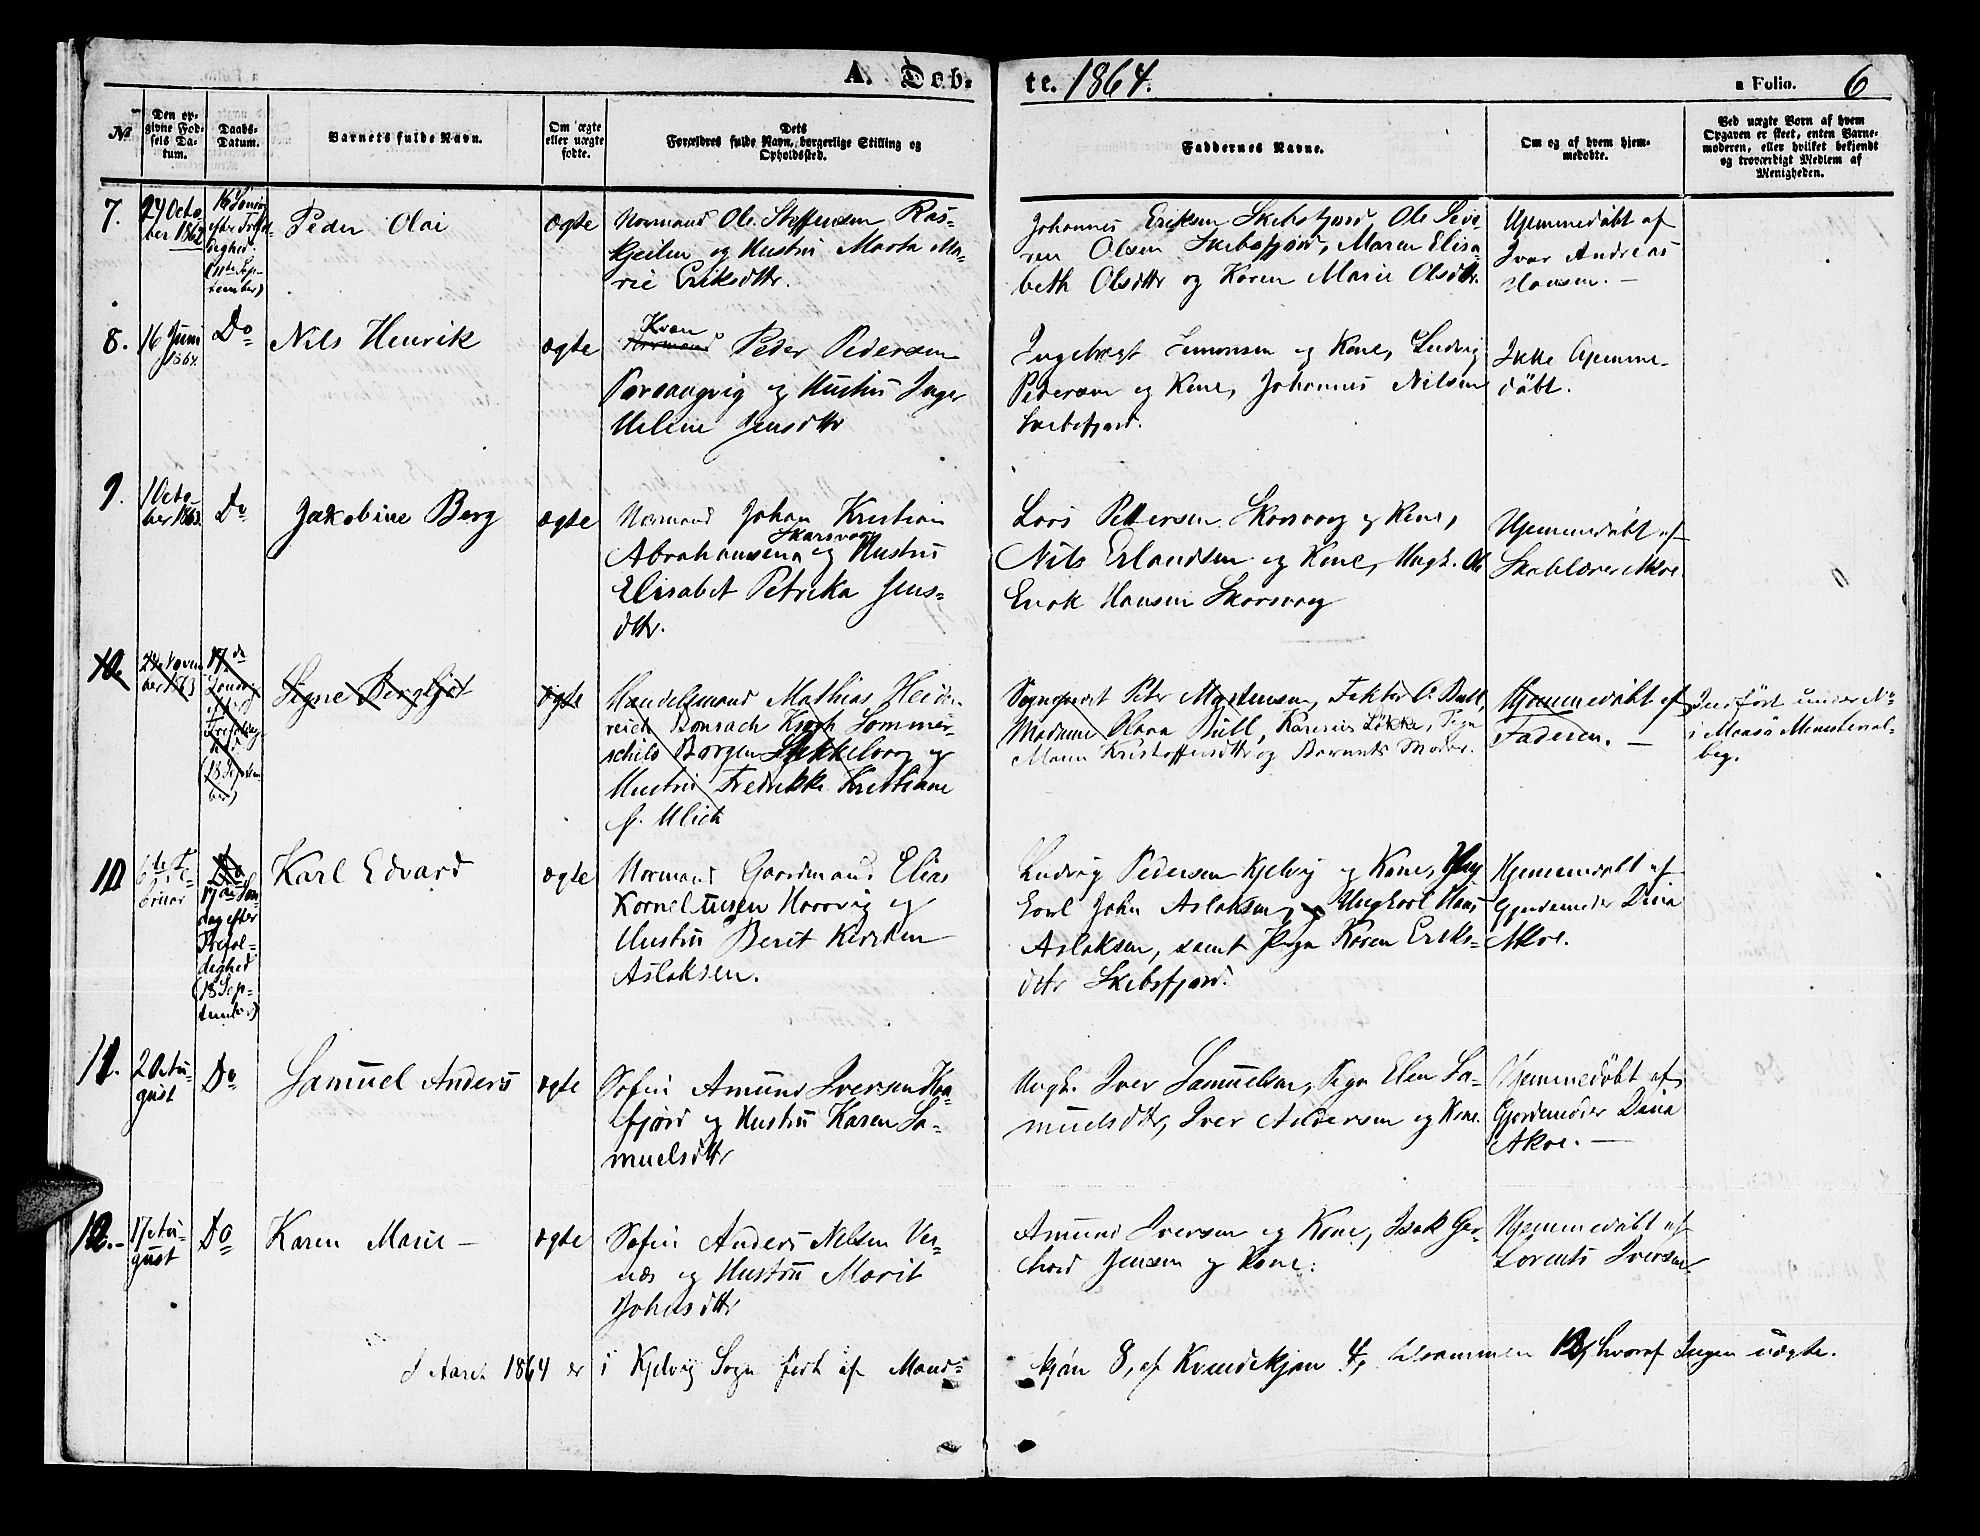 A. Døb-
te. 1864.
a Folio. 6
No
Den op-
givne Fød-
sels Da-
tum.
Daabs-
Datum.
Barnets fulde Navn.
Om ægte
eller uægte
fødte.
Dets
Forældres fulde Navn, borgerlige Stilling og
Opholdssted.
Faddernes Navne.
Om og af hvem hjem-
medøbte.
Ved uægte Børn af hvem
Opgaven er skeet, enten Barne-
moderen, eller hvilket bekjendt
og troværdigt Medlem af
Menigheden.
7.
24 Octo-
ber 1862
16 Sønd
efter Trefol-
dighed.
(11te Sep-
tember)
Peder Olai
ægte
Normand Ole Steffensen Ris-
kjeilen og Hustru Marta Ma-
rie Eriksdttr.
Johannes Eriksen Skibsfjord, Ole Seve-
rin Olsen Skibsfjord, Maren Elisa-
beth Olsdttr og Karen Marie Olsdttr.
Hjemmedøbt af
Ivar Andreas
Hansen. —
8.
16 Juni
1864.
Do
Nils Henrik
ægte
Kvæn
Normand Peder Pedersen
Porsangvig og Hustru Inger
Helene Jensdttr
Ingebregt Simonsen og Kone, Ludvig
Pedersen og Kone, Johannes Nilsen
Skibsfjord.
Ikke Hjemme-
døbt.
9.
1 Octo-
ber 1863.
Do
Jakobine Berg
ægte
Normand Johan Kristian
Skarsvaag
Abrahamsen og Hustru
Elisabet Petrika Jens-
dttr.
Lars Pettersen Skarsvaag og Kone,
Nils Erlandsen og Kone, Ungk. Ole
Enok Hansen Skarsvaag
Hjemmedøbt af
Skolelærer Akoe.
10
24 Novem
ber 1863
17de
Søndag
efter
Trefoldig-
hed
(18 Septem-
ber)
Signe Bergljot
ægte
Handelsmand Mathias Heiden-
reich Bonsach Krogh Sommer-
schild Borgen Sükkelvaag og
Hustru Fredrikke Kristiane
f. Ulich
Sognepræst Peter Mortensen, Faktor O. Bull,
Madame Olava Bull, Karenius Løkke, Pige
Maren Kristoffersdttr og Barnets Moder.
Hjemmedøbt af
Faderen. —
Indført under No
i Maasø Ministerial-
bog.
10
6te Fe-
bruar
Do
17de Søn-
dag efter
Trefol-
dighed
(18 Sep-
tember)
Karl Edvard
ægte
Normand Gaardmand Elias
Korneliusen Honsvåg og
Hustru Berit Kirsten
Aslaksen.
Ludvig Pedersen Kjelvig og Kone, Ung
Carl John Aslaksen, Ungkarl Hans
Aslaksen, samt Pige Karen Eriks-
dttr Skibsfjord.
Hjemmedøbt af
Gjordemoder Dina
Akoe.
11.
20 Au-
gust
Do
Samuel Anders
ægte
Søfin Amund Iversen Kva-
lfjord og Hustru Karen Sa-
muelsdttr
Ungk. Iver Samuelsen, Pige Elen Sa-
muelsdttr, Iver Andersen og Kone.
Hjemmedøbt af
Gjordemoder Dina
Akoe. —
12.-
17 Au-
gust
Do
Karen Marie —
ægte
Søfin Anders Nilsen Ver-
nes og Hustru Marit
Johnsdttr
Amund Iversen og Kone, Isak Ger-
hard Jensen og Kone.
Hjemmedøbt af
Lorents Iversen.
I Aaret 1864 er i Kjelvig Sogn født af Mand-
kjøn 8, af Kvindekjøn 4, tilsammen 12, hvoraf Ingen uægte.